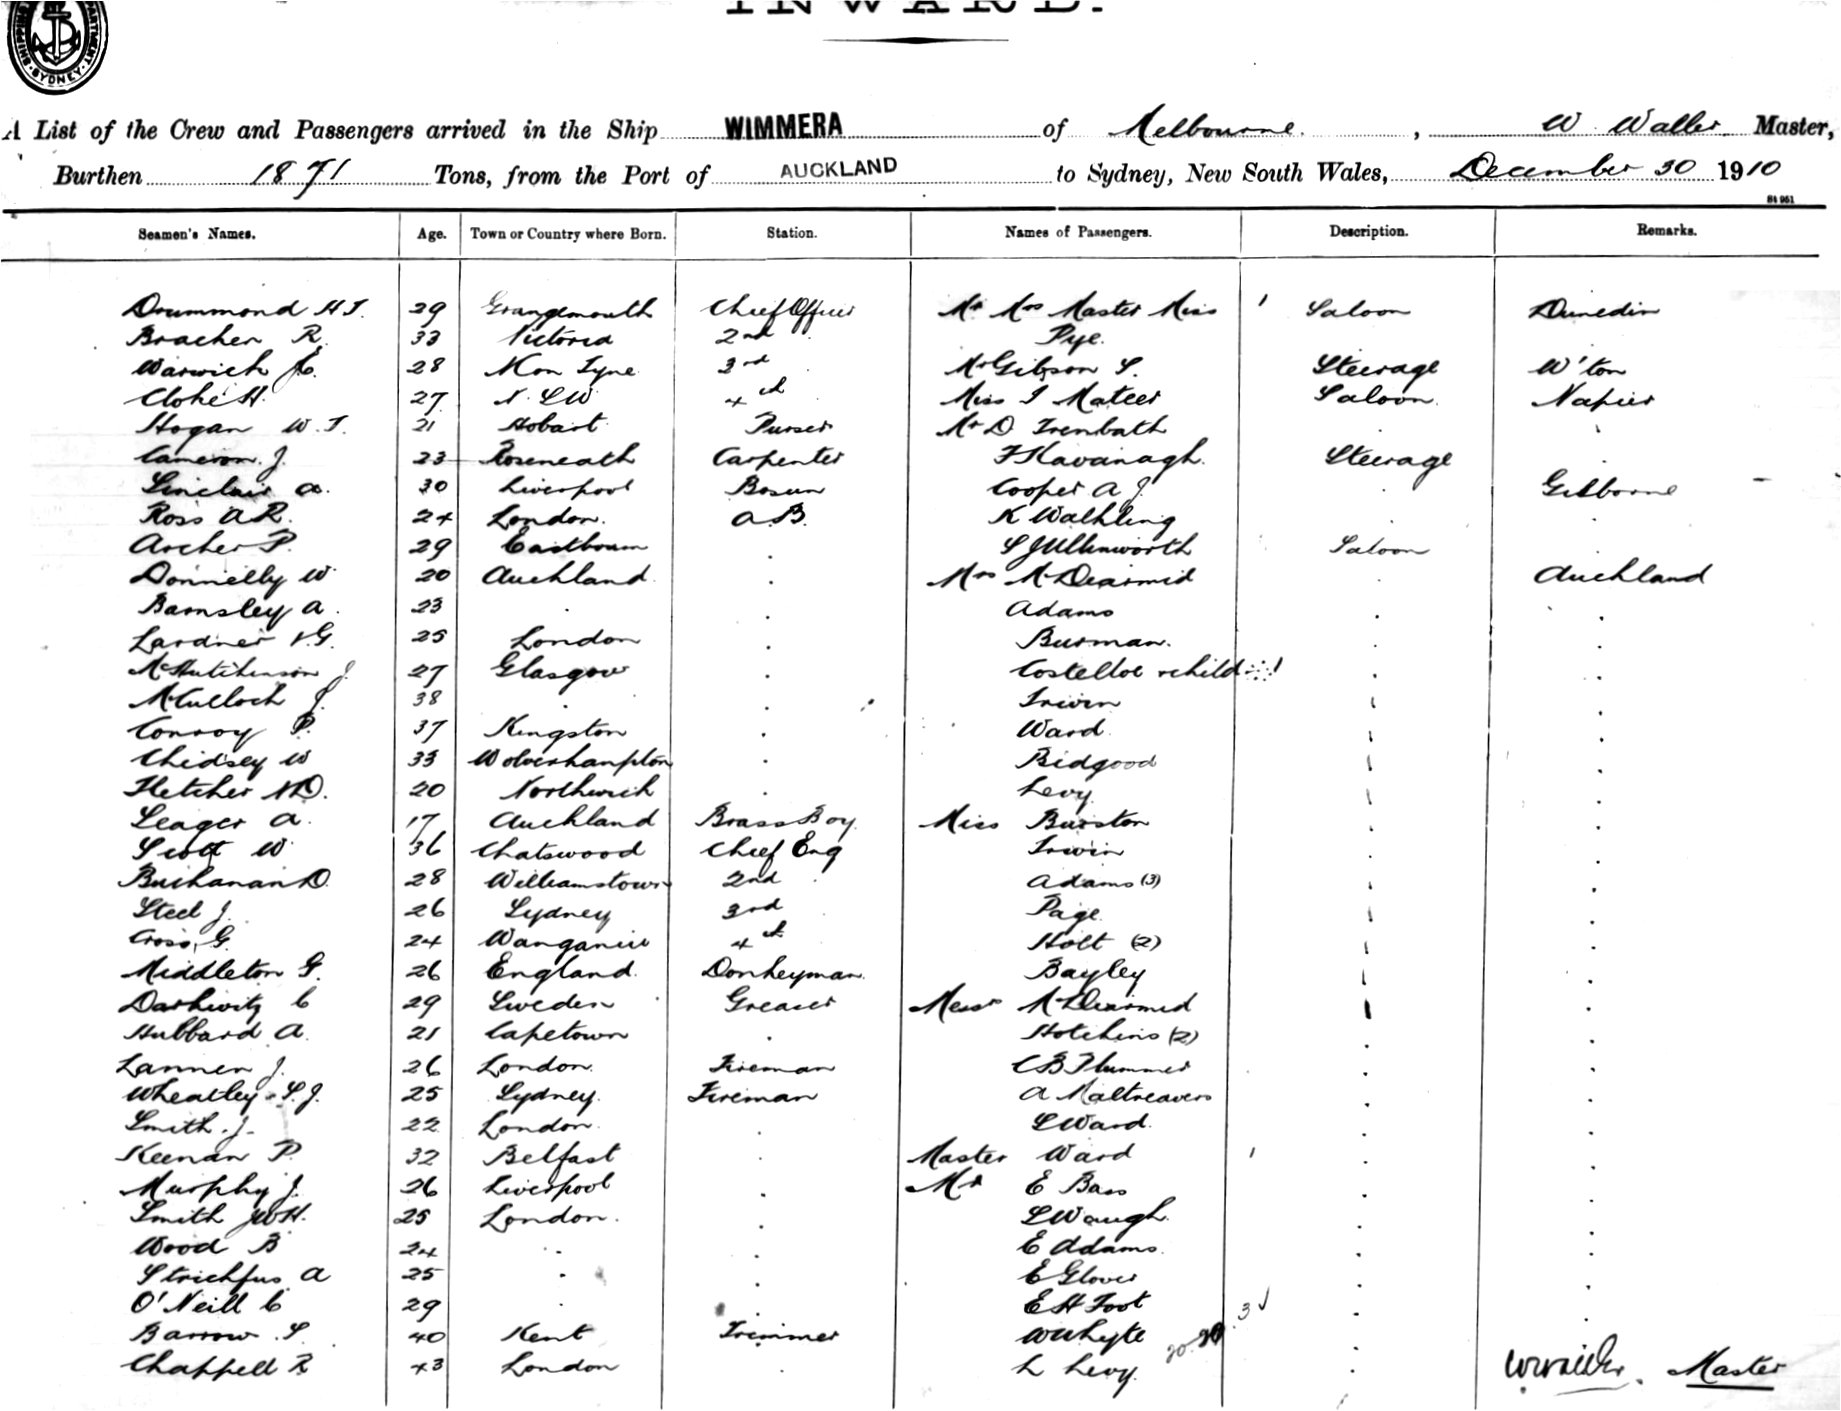 INWARD.
SHIPPING DEPARTMENT SYDNEY
A List of the Crew and Passengers arrived in the Ship WIMMERA of Melbourne, W Waller Master,
Burthen 1871 Tons, from the Port of AUCKLAND to Sydney, New South Wales, December 30 1910
St 951
Seamen's Names. Age. Town or Country where Born. Station. Names of Passengers. Description. Remarks.
Drummond H J. 29 Grangemouth Chief Officer Mr Mrs Master Miss 1 Saloon Dunedin
Bracher R. 33 Victoria 2nd Pye.
Warwick 28 N on Tyne 3rd Mr Gibson S. Steerage W'ton
Cloke H. 27 N. S W. 4th Miss I Mateer Saloon Napier
Hogan W. J. 21 Hobart Purser Mr D Trenbath
Cameron. J. 23 Roseneath Carpenter F Kavanagh. Steerage
Sinclair A. 30 Liverpool Bosun Cooper A J Gisborne
Ross A R. 24 London. A B. K Wathling
Archer P. 29 Eastbourn Saloon
Donnelly W 20 Auckland Mrs McDearmid Auckland
Barnsley A. 23 Adams
Lardner 25 London Burman.
McHutchinson J 27 Glasgow Costelloe + child 1
McCulloch J. 38 Irwin
Conroy P. 37 Kingston Ward
Chidsey W 33 Wolverhampton Bidgood
Fletcher 20 Northwich Levy
Seager A. 17 Auckland Brass Boy Miss Burston
Scott W 36 Chatswood Chief Eng Irwin
Buchanan D. 28 Williamstown 2nd Adams (3)
Steel J. 26 Sydney 3rd Page
Cross, G. 24 Wanganui 4th Holt (2)
Middleton G. 26 England. Donkeyman. Bayley
Darkwitz C 29 Sweden Greaser Messr McDearmid
Hubbard A. 21 Capetown Hotchins (2)
Lannen J. 26 London. Fireman C B Plummer
Wheatley S. J. 25 Sydney. Fireman A Maltreavers
Smith. J. 22 London. S Ward.
Keenan P. 32 Belfast Master Ward 1
Murphy J. 26 Liverpool Mr E Bass
Smith J W H. 25 London. S Waugh.
Wood B 24 E Adams.
Strichfus A 25 E Glover
O'Neill C 29 E H Foot 3
Barrow. S. 40 Kent Trimmer W Whyte 20.
Chappell R 43 London L Levy. Master